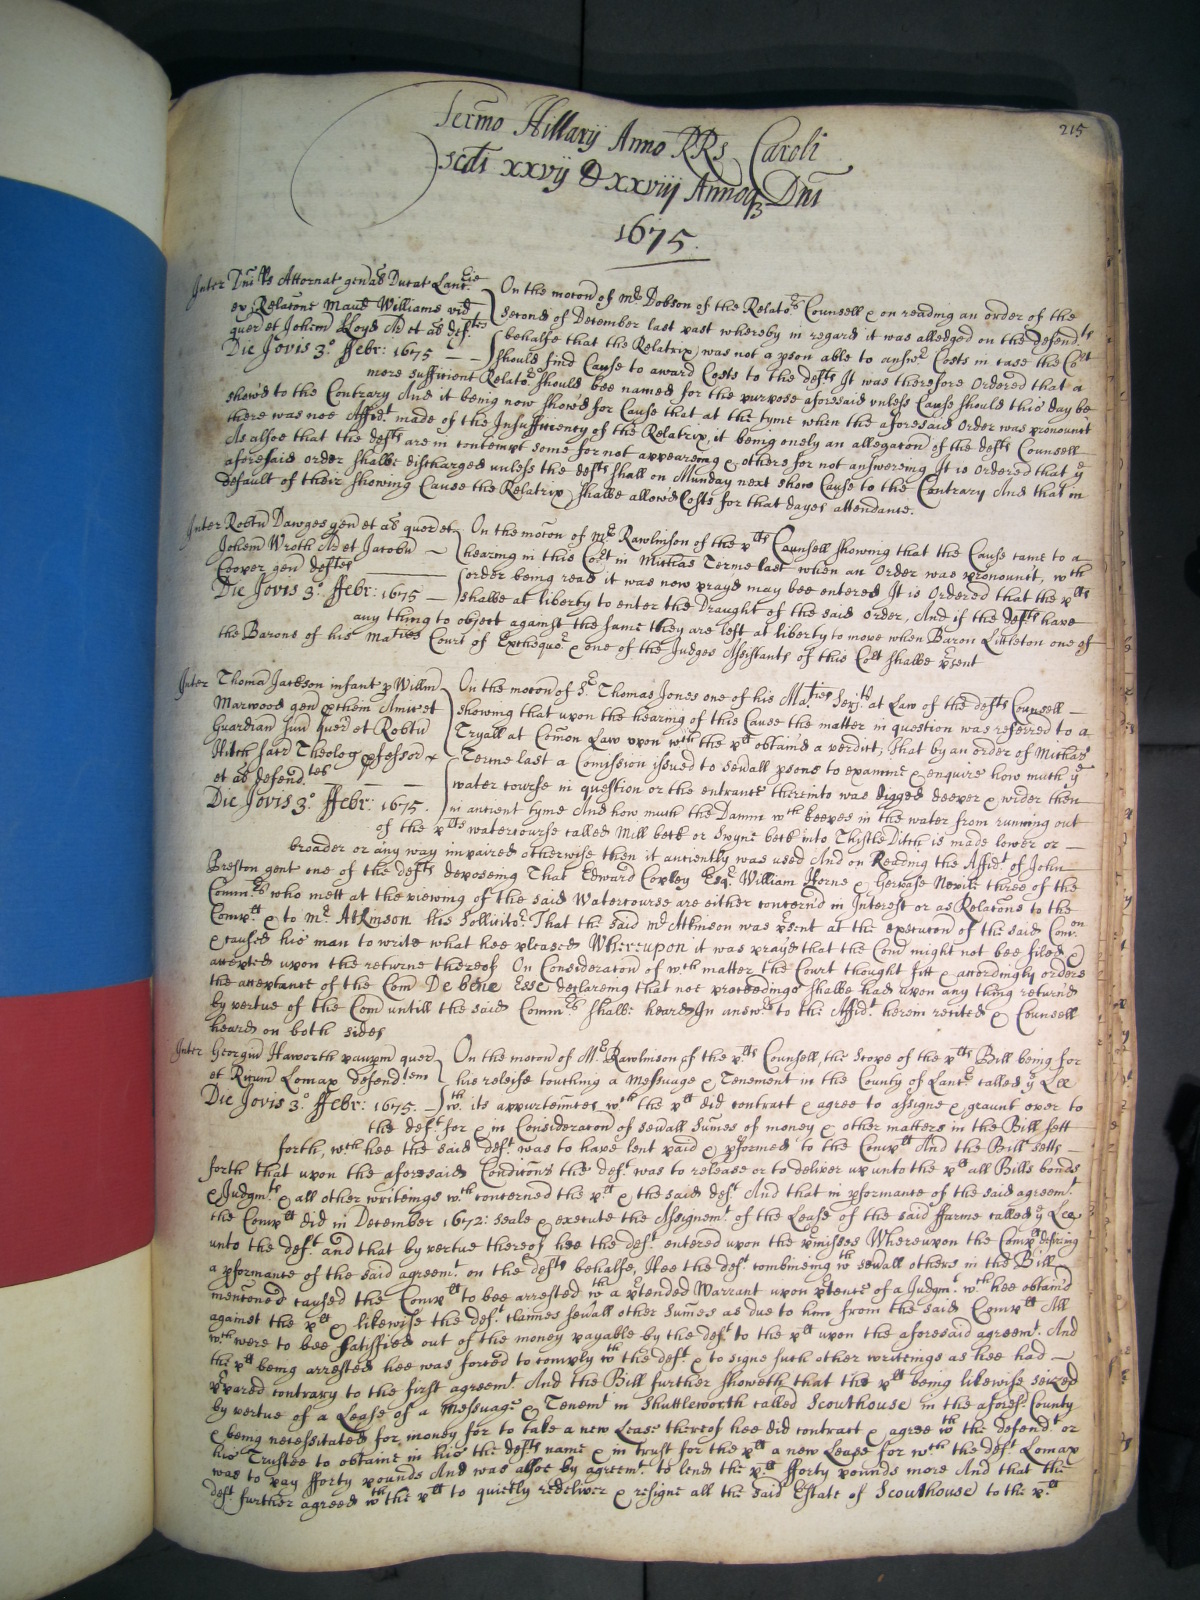 215
Termo Hillarij Anno RRs Caroli
scdi xxvij & xxviij Annoq3 Dni
1675.
Inter Dni Rs Attornat genal Ducat Lanc
ex Relatone Maud Williams vid
quer et Johem Lloyd Ar et al defts
Die Jovis 3° ffebr: 1675
On the motion of Mr Dobson of the Relators Counsell & on reading an order of the
second of December last past whereby in regard it was alledged on the defendts
behalfe that the Relatrix was not a pson able to answr Costs in case the Cort
should find Cause to award Costs to the defts It was therefore Ordered that a
more sufficient Relator should bee named for the purpose aforesaid unless Cause should this day be
showed to the Contrary And it being now showed for Cause that at the tyme when the aforesaid Order was pronounct
there was noe Affidt made of the Insufficiency of the Relatrix, it being onely an allegation of the defts Counsell
As alsoe that the defts are in contempt some for not appearing & others for not answering It is Ordered that ye
aforesaid order shalbe discharged unless the defts shall on Munday next show Cause to the Contrary And that in
default of their showing Cause the Relatrix shalbe allowed Costs for that dayes attendance.
Inter Robtu Dawges gen et al quer et
Johem Wroth Ar et Jacobu
Cooper gen deftes
Die Jovis 3° ffebr: 1675
On the motion of Mr Rawlinson of the plts Counsell showing that the Cause came to a
hearing in this Cort in Michas Terme last when an Order was pronounct, wch
order being read it was now prayd may bee entered It is Ordered that the plts
shalbe at liberty to enter the Draught of the said order, And if the defts have
any thing to object against the same they are left at liberty to move when Baron Littleton one of
the Barons of his Maties Court of Exchequer & one of the Judges Assistants of this Cort shalbe prsent
Inter Thoma Jackson infant p Willm
Marwood gen pxhem Amic et
Guardian suu quer et Robtu
Hitch Sacr Theolog pfessor
et al defendtes
Die Jovis 3° ffebr: 1675.
On the motion of Sr Thomas Jones one of his Maties Serjts at Law of the defts Counsell
showing that upon the hearing of this Cause the matter in question was referred to a
Tryall at Comon Law upon wch the plt obtained a verdict, That by an order of Michas
Terme last a Comission issued to sevall psons to examine & enquire how much ye
water course in question or the entrance thereinto was digged deeper & wider then
in antient tyme And how much the Damm wch keepes in the water from running out
of the plts watercourse called Mill beck or Swyne beck into Thistle Ditch is made lower or
broader or any way impaired otherwise then it antiently was used And on Reading the Affidt of John
Breston gent one of the defts deposeing That Edward Copley Esqr William Horne & Gervase Nevile three of the
Commrs who mett at the viewing of the said Watercourse are either concern'd in Interest or as Relations to the
Complt & to Mr Atkinson his Sollicitor. That the said Mr Atkinson was prsent at the execution of the said Comion
& caused his man to write what hee pleased Whereupon it was prayd that the Comn might not bee filed &
accepted upon the returne thereof On Consideration of wch matter the Court thought fitt & accordingly orders
the acceptance of the Comn De bene Esse declareing that noe proceedings shalbe had upon any thing returnd
by vertue of the Comn untill the said Commrs shalbe heard In answr to the Affidt herein recited & Counsell
heard on both sides
Inter Georgiu Haworth paupm quer
et Ricum Lomax defendtem
Die Jovis 3° ffebr: 1675.
On the motion of Mr Rawlinson of the plts Counsell, the Scope of the plts Bill being for
his releife touching a Messuage & Tenement in the County of Lancr called ye Lee
wth its appurtennces wch the plt did contract & agree to assigne & graunt over to
the deft for & in Consideration of sevall sumes of money & other matters in the Bill sett
forth, wch hee the said deft was to have lent paid & pformed to the Complt And the Bill setts
forth that upon the aforesaid Conditions the deft was to release or to deliver up unto the plt all Bills bonds
& Judgmts & all other writeings wch concerned the plt & the said deft And that in pformance of the said agreemt
the Complt did in December 1672: seale & execute the Assignemt of the Lease of the said ffarme called ye Lee
unto the deft and that by vertue thereof hee the deft entered upon the prmisses Whereupon the Complt desiring
a pformance of the said agreemt on the defts behalfe, Hee the deft combineing wth sevall others in the Bill
mentioned caused the Complt to bee arrested wth a prtended Warrant upon prtence of a Judgmt wch hee obtaind
against the plt & likewise the deft claimes sevall other sumes as due to him from the said Complt All
wch were to bee satisfied out of the money payable by the deft to the plt upon the aforesaid agreemt. And
the plt being arrested hee was forced to comply wth the deft & to signe such other writeings as hee had
prpared contrary to the first agreemt. And the Bill further showeth that the plt being likewise seized
by vertue of a Lease of a Messuage & Tenemt in Shuttleworth called Scouthouse in the aforesd County
& being necessitated for money for to take a new Lease thereof hee did contract & agree wth the defendt or
his Trustee to obtaine in his the defts name & in trust for the plt a new Lease for wch the deft Lomax
was to pay fforty pounds And was alsoe by agreemt. to lend the plt fforty pounds more And that the
deft further agreed wth the plt to quietly redeliver & resigne all the said Estate of Scouthouse to the plt